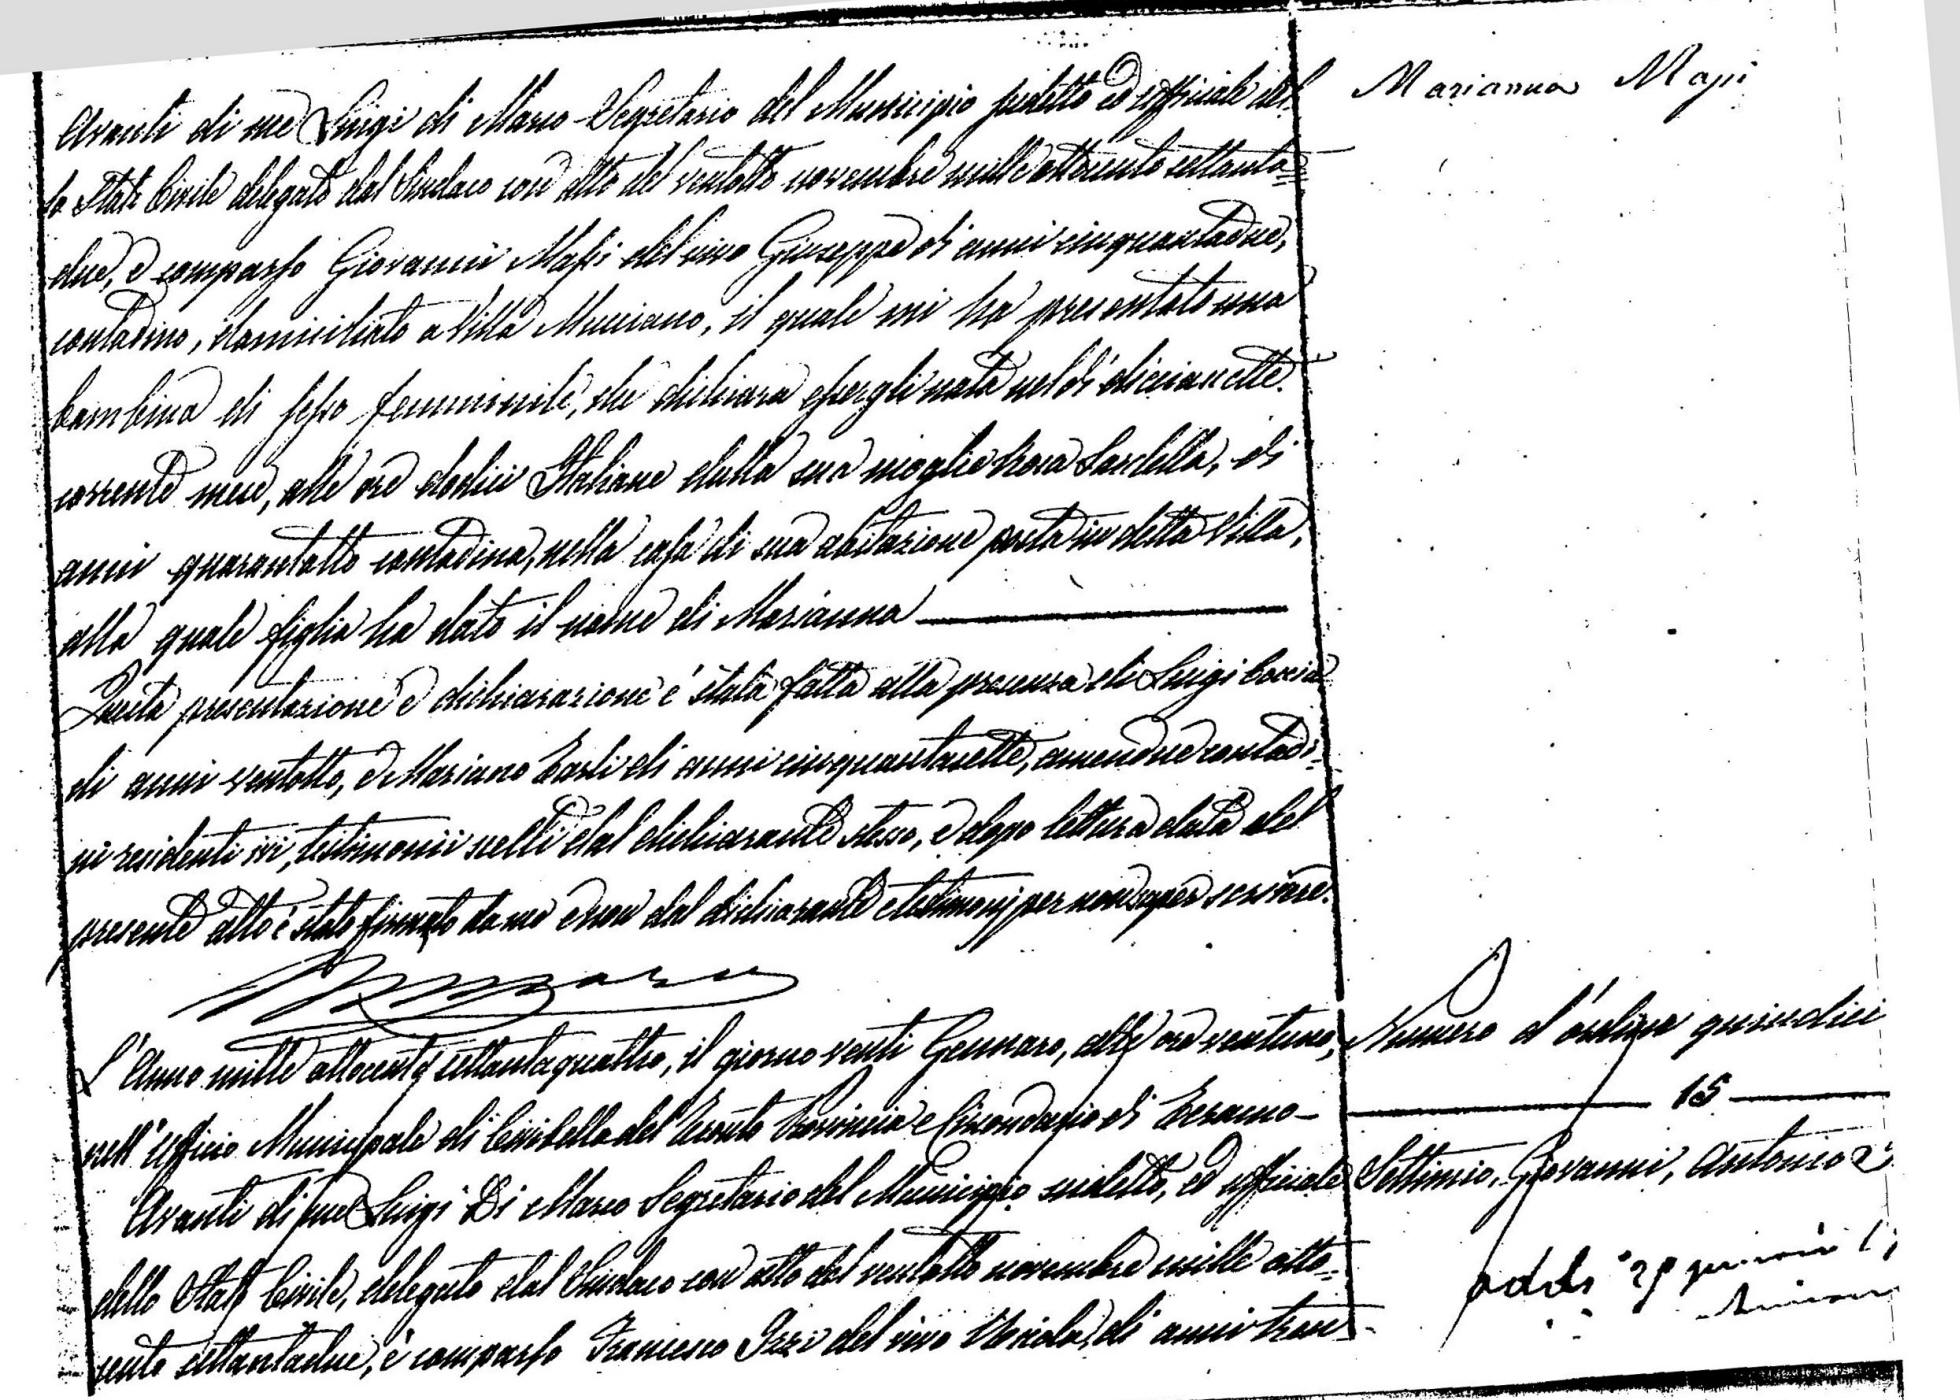 Marianna Masi
Avanti di me Luigi di Marco Segretario del Municipio sudetto ed Officiale del-
lo Stato Civile delegato dal Sindaco con atto del ventotto novembre mille ottocento settanta=
due, è comparso Giovanni Masi del vivo Giuseppe di anni cinquantadue,
contadino, domiciliato a Villa Mucciano, il quale mi ha presentato una
bambina di sesso femminile, che dichiara essergli nata nel dì diciassette
corrente mese, alle ore dodici Italiane dalla sua moglie Rosa Sardella, di
anni quarantotto contadina, nella casa di sua abitazione posta in detta Villa,
alla quale figlia ha dato il nome di Marianna
Questa presentazione e dichiarazione è stata fatta alla presenza di Luigi
di anni ventotto, e Mariano di anni cinquantasette, amendue contadi=
ni residenti ivi, testimonii scelti dal dichiarante stesso, e dopo lettura data del
presente atto è stato firmato da me e non dal dichiarante e testimonj per non saper scrivere.
L'Anno mille ottocento settantaquattro, il giorno venti Gennaro, alle ore ventuno,
nell'Ufficio Municipale di Civitella del Tronto Provincia e Circondario di Teramo-
Avanti di me Luigi Di Marco Segretario del Municipio sudetto, ed officiale
dello Stato Civile, delegato dal Sindaco con atto del ventotto novembre mille otto=
cento settantadue, è comparso Francesco Izzi del vivo Nicola, di anni tren-
Numero d'ordine quindici
15
Settimio, Giovanni, Antonio
addi